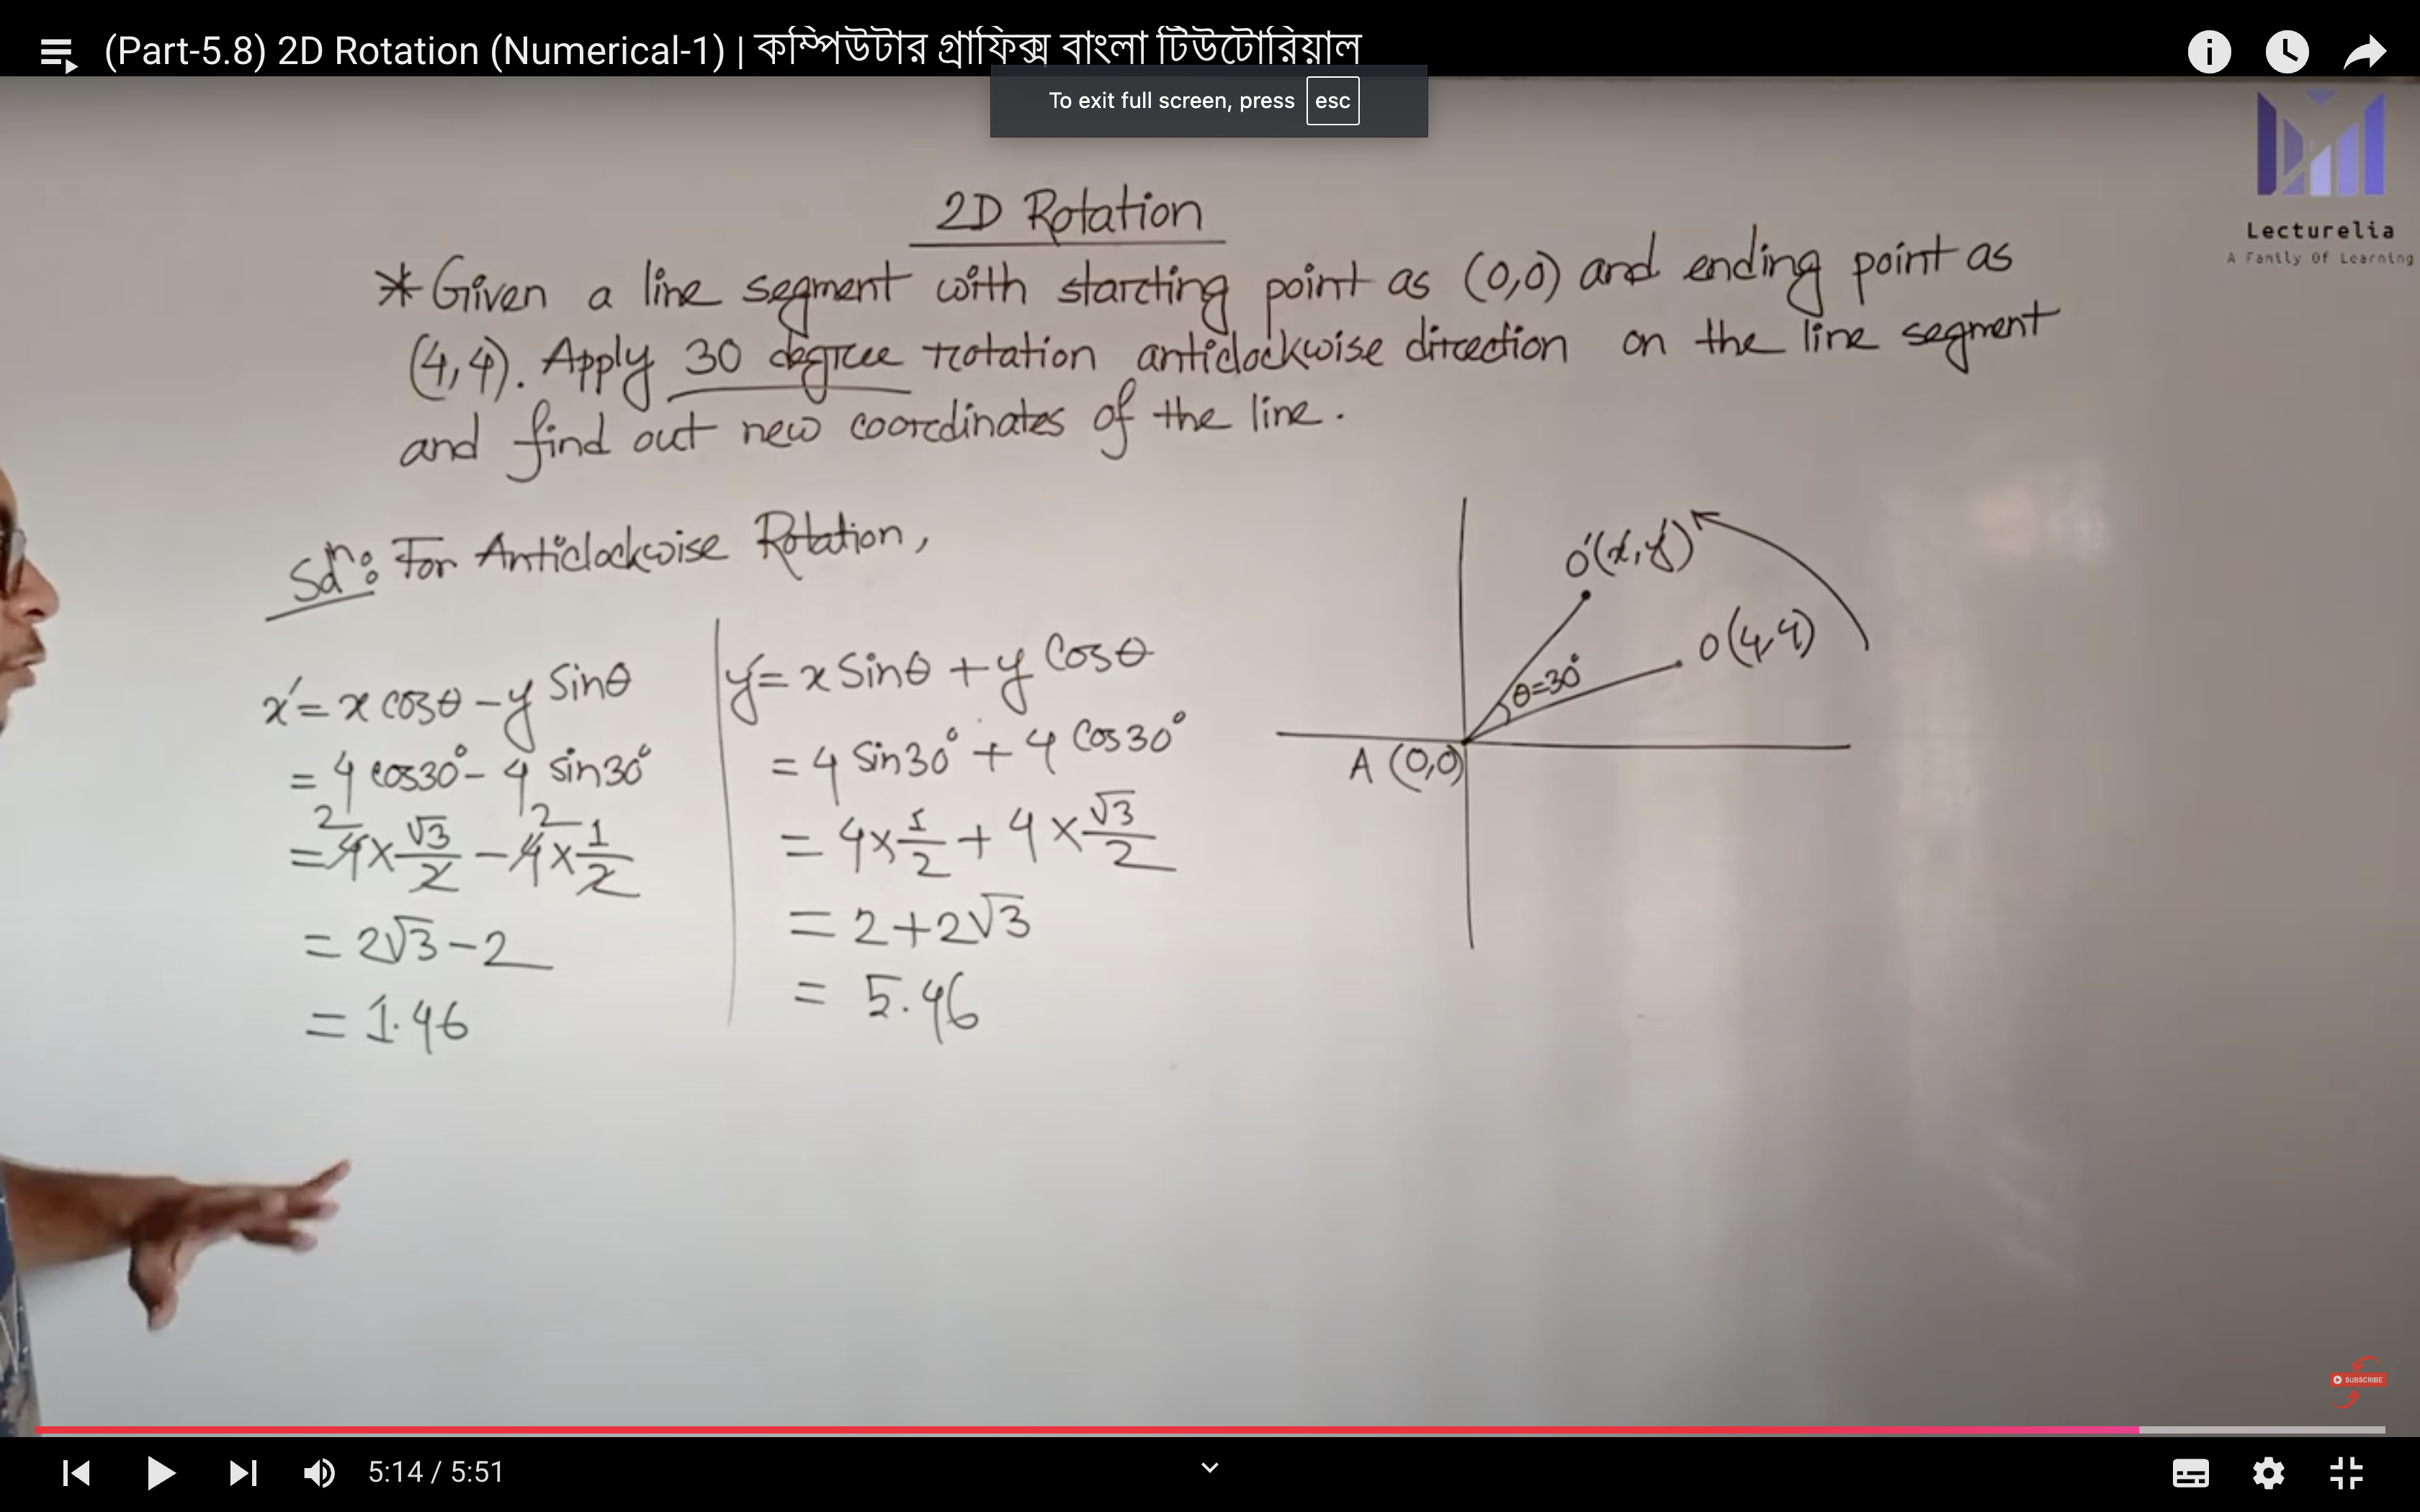 (Part-5.8) 2D Rotation (Numerical-1) | কম্পিউটার গ্রাফিক্স বাংলা টিউটোরিয়াল
To exit full screen, press esc
Lecturelia
A Family Of Learning
2D Rotation
* Given a line segment with starting point as (0,0) and ending point as
(4,4). Apply 30 degree rotation anticlockwise direction on the line segment
and find out new coordinates of the line.
Solⁿ: For Anticlockwise Rotation,
x′ = x cosθ - y Sinθ
= 4 cos30° - 4 sin30°
2 2
= 4 × √3/2 - 4 × 1/2
= 2√3 - 2
= 1.46
y′ = x Sinθ + y Cosθ
= 4 Sin30° + 4 Cos30°
= 4 × 1/2 + 4 × √3/2
= 2 + 2√3
= 5.46
O′(x′,y′)
O(4,4)
θ=30°
A (0,0)
SUBSCRIBE
5:14 / 5:51